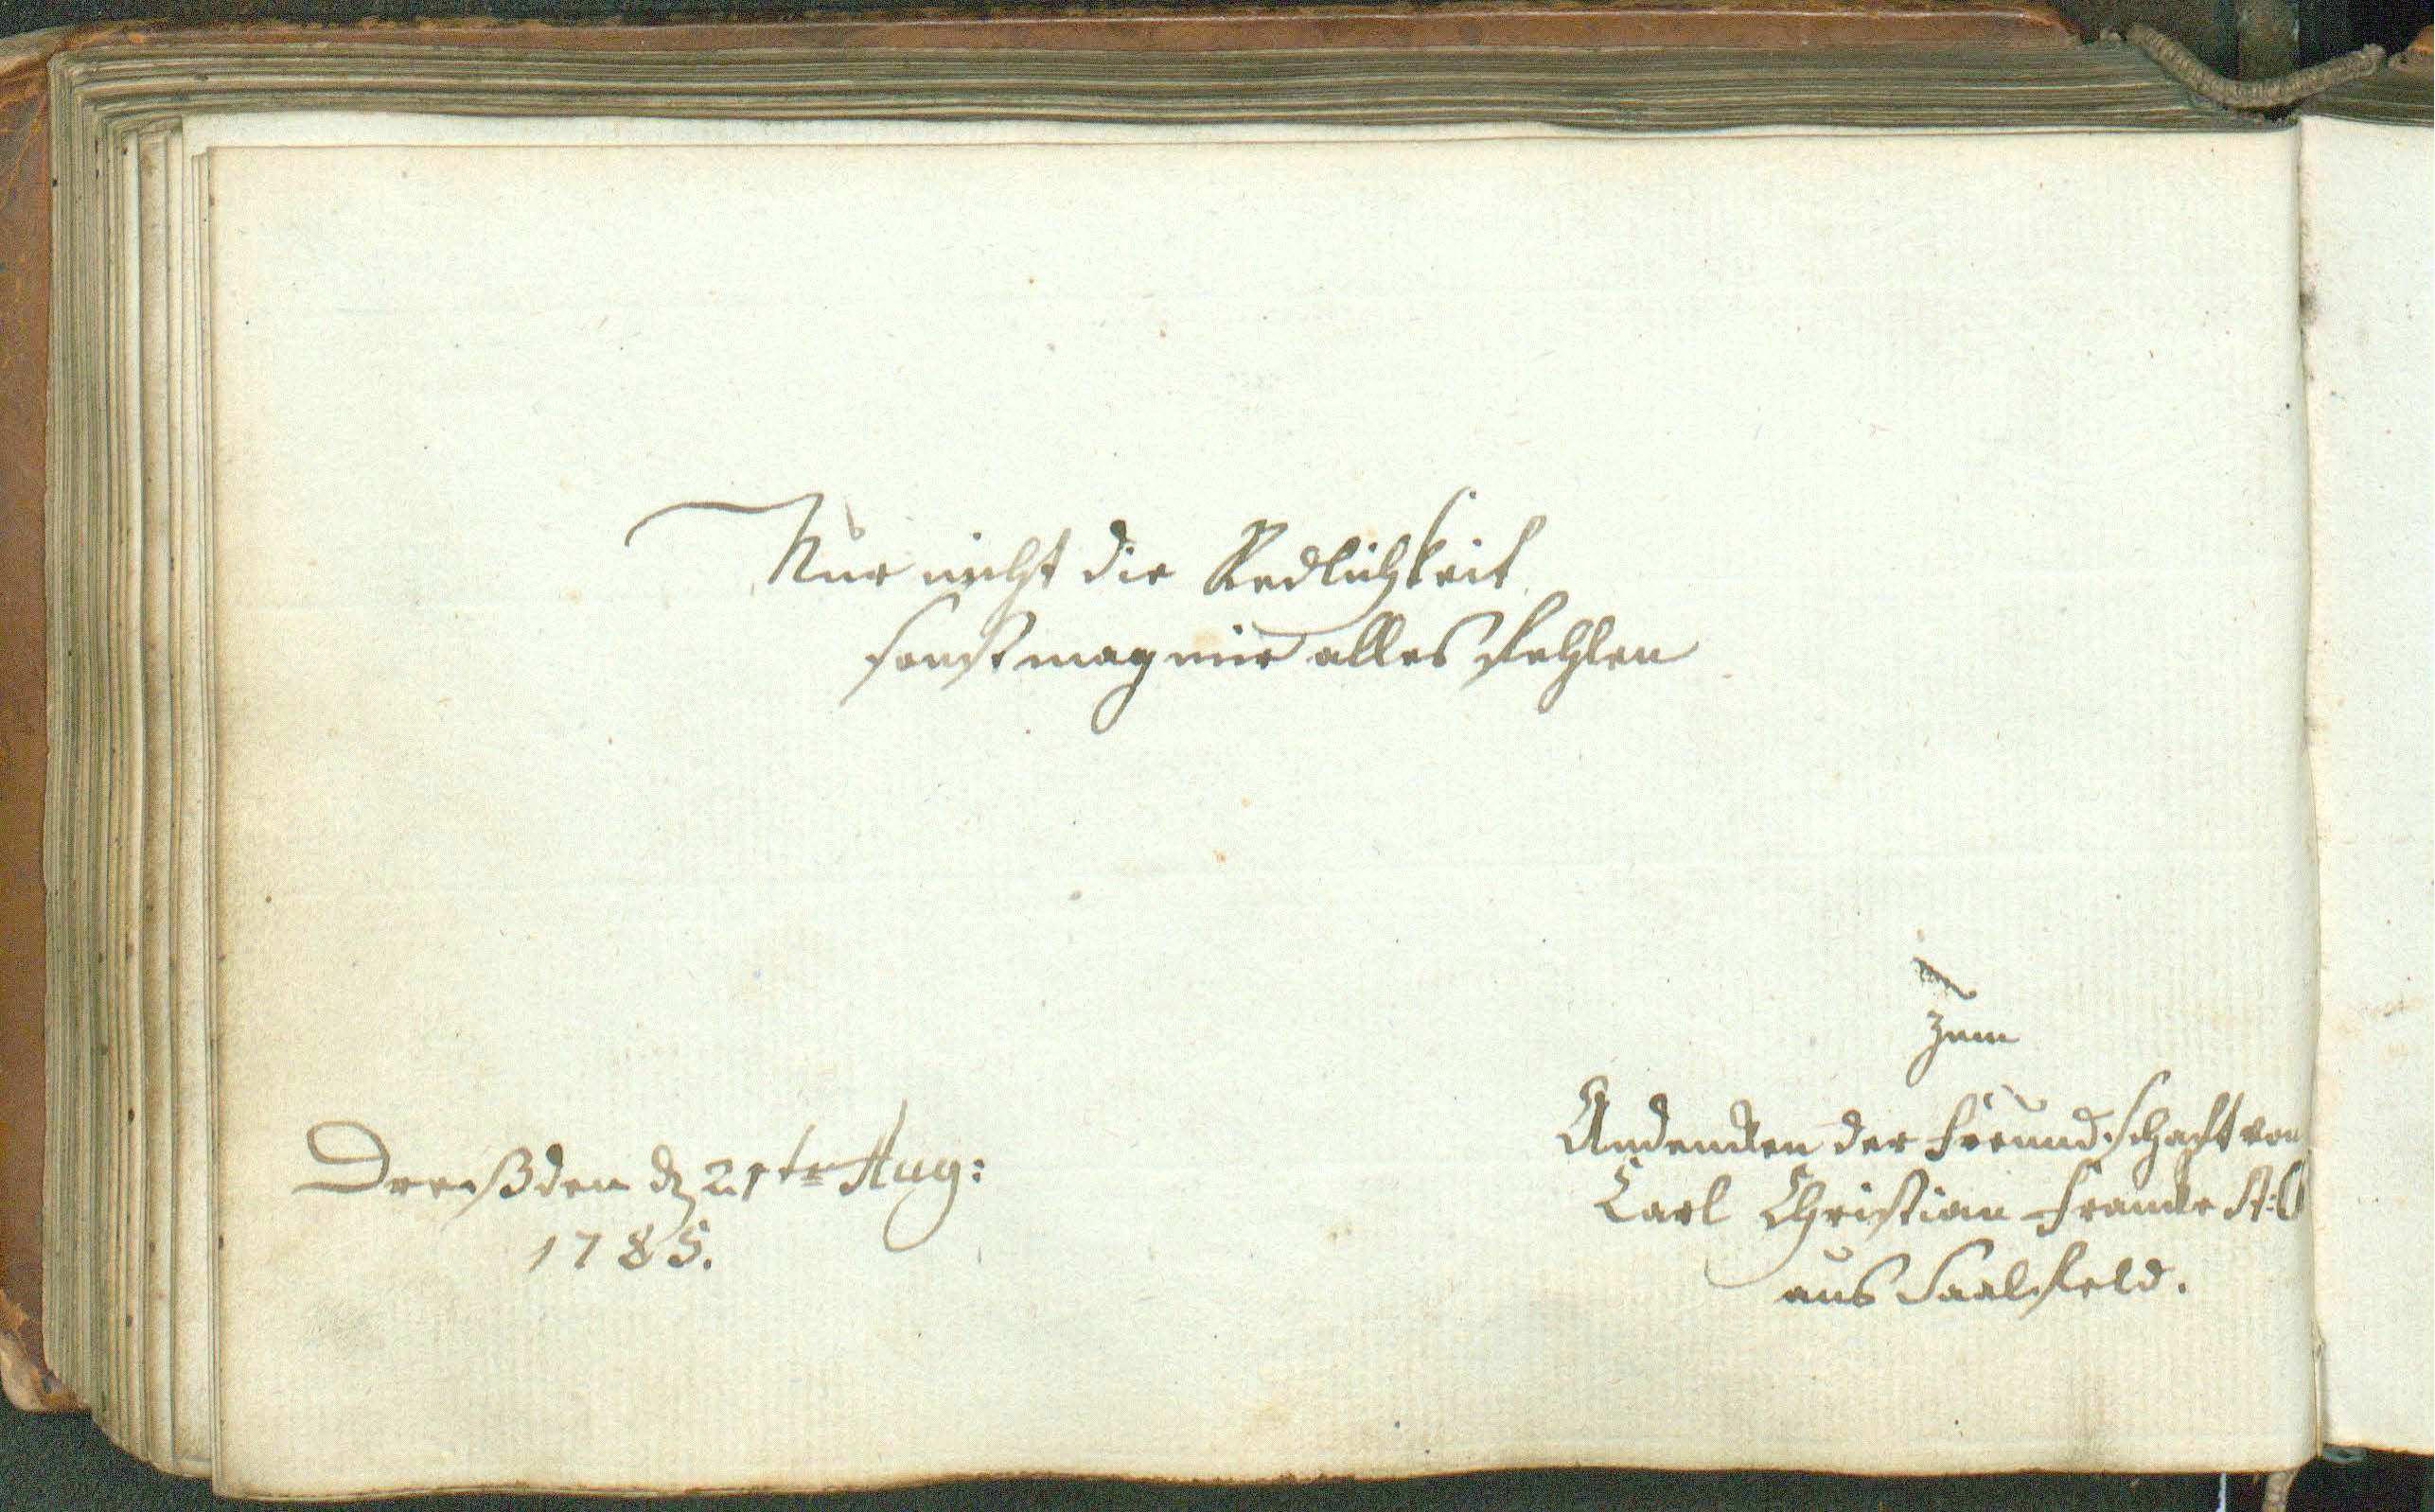 Nur nicht die Redlichkeit
sonst mag mir alles fehlen
Dreßden d 21te Aug:
1785.
Zum
Andencken der Freundschafft von
Carl Christian Francke
aus Saalfeld.